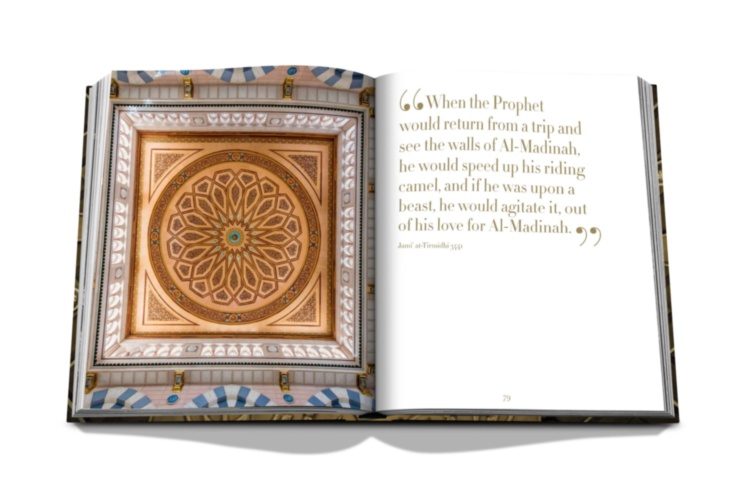 “When the Prophet
would return from a trip and
see the walls of Al-Madinah,
he would speed up his riding
camel, and if he was upon a
beast, he would agitate it, out
of his love for Al-Madinah.”
Jami‘ at-Tirmidhi 3441
79